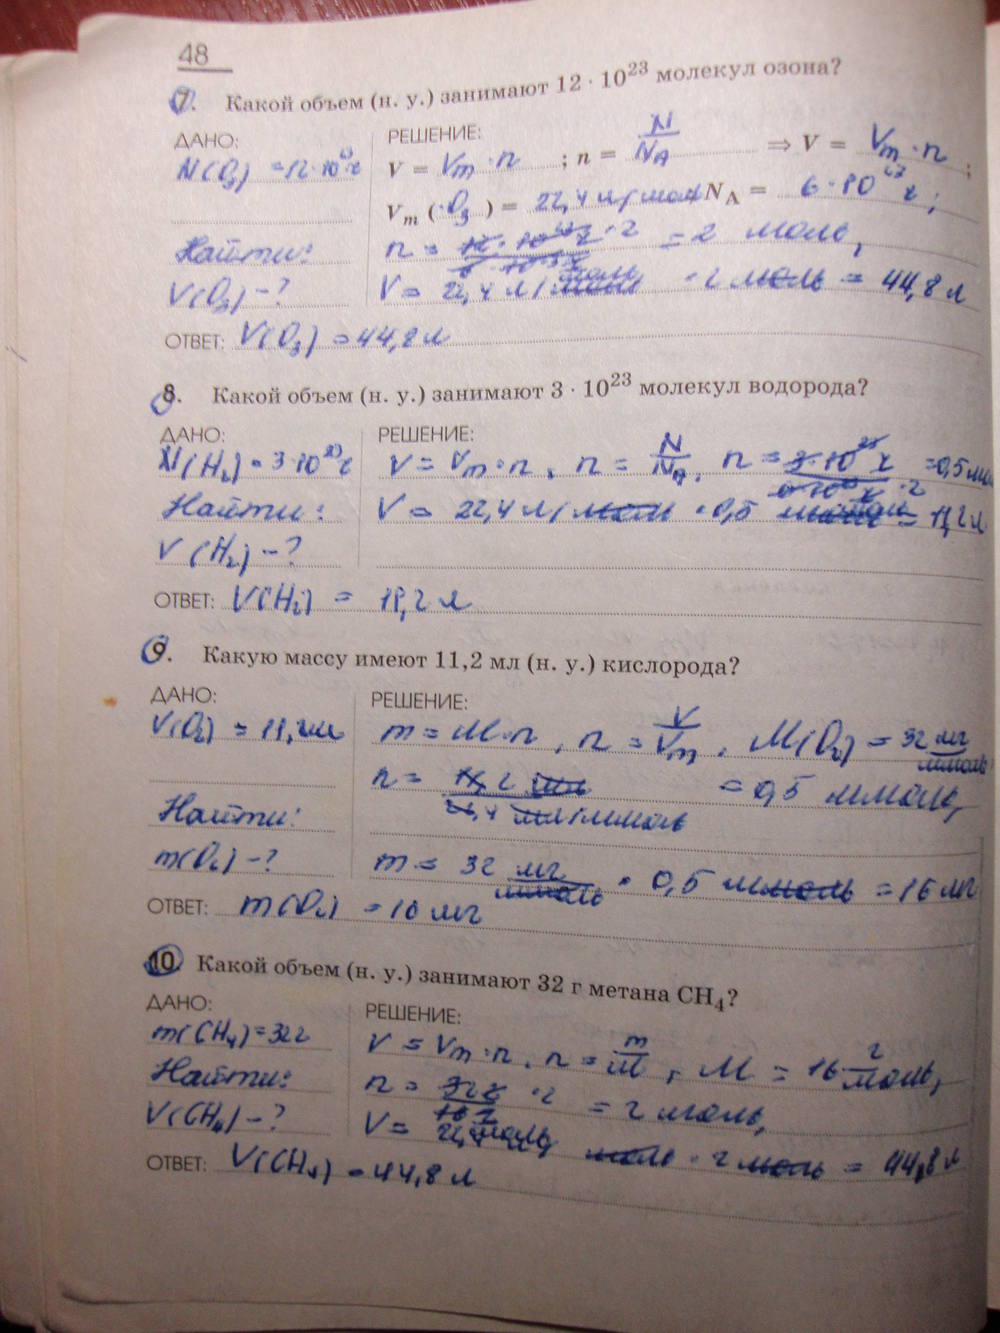 48
7. Какой объем (н. у.) занимают 12 · 10²³ молекул озона?
ДАНО:
N(O₃) = 12·10²³
РЕШЕНИЕ:
V = Vm · n ; n = N/NA ⇒ V = Vm · n ;
Vm (O₃) = 22,4 л/моль NA = 6·10²³ ;
Найти:
n = 12·10²³ / 6·10²³ = 2 моль,
V(O₃) – ?
V = 22,4 л/моль · 2 моль = 44,8 л
ОТВЕТ: V(O₃) = 44,8 л
8. Какой объем (н. у.) занимают 3 · 10²³ молекул водорода?
ДАНО:
N(H₂) = 3·10²³
РЕШЕНИЕ:
V = Vm · n, n = N/NA, n = 3·10²³ / 6·10²³ = 0,5
Найти:
V = 22,4 л/моль · 0,5 моль = 11,2 л
V(H₂) – ?
ОТВЕТ: V(H₂) = 11,2 л
9. Какую массу имеют 11,2 мл (н. у.) кислорода?
ДАНО:
V(O₂) = 11,2 мл
РЕШЕНИЕ:
m = M·n, n = V/Vm, M(O₂) = 32 мг/ммоль
n = 11,2 мл / 22,4 мл/ммоль = 0,5 ммоль,
Найти:
m(O₂) – ?
m = 32 мг/ммоль · 0,5 ммоль = 16 мг
ОТВЕТ: m(O₂) = 16 мг
10. Какой объем (н. у.) занимают 32 г метана CH₄?
ДАНО:
m(CH₄) = 32 г
РЕШЕНИЕ:
V = Vm · n, n = m/M, M = 16 г/моль,
Найти:
n = 32 г / 16 г = 2 моль,
V(CH₄) – ?
V = 22,4 моль · 2 моль = 44,8 л
ОТВЕТ: V(CH₄) = 44,8 л